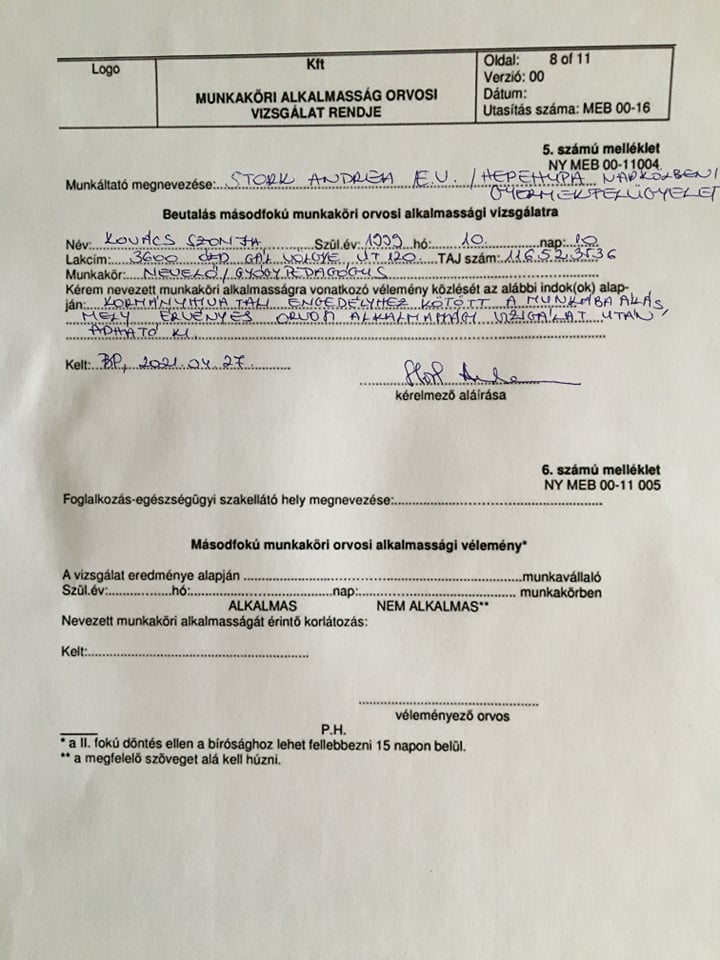 Logo
Kft
MUNKAKÖRI ALKALMASSÁG ORVOSI
VIZSGÁLAT RENDJE
Oldal: 8 of 11
Verzió: 00
Dátum:
Utasítás száma: MEB 00-16
5. számú melléklet
NY MEB 00-11004
Munkáltató megnevezése: STORK ANDREA E.V. / HEPEHUPA NAPKÖZBENI
GYERMEKFELÜGYELET
Beutalás másodfokú munkaköri orvosi alkalmassági vizsgálatra
Név: KOVÁCS SZONJA Szül.év: 1999 hó: 10. nap: 10
Lakcím: 3600 ÓZD GÁL VÖLGYE ÚT 120. TAJ szám: 116.523.536
Munkakör: NEVELŐ / GYÓGYPEDAGÓGUS
Kérem nevezett munkaköri alkalmasságra vonatkozó vélemény közlését az alábbi indok(ok) alap-
ján: KORMÁNYHIVATALI ENGEDÉLYHEZ KÖTÖTT A MUNKÁBA ÁLLÁS,
MELY ÉRVÉNYES ORVOSI VIZSGÁLAT UTÁN
ADHATÓ KI.
Kelt: BP, 2021.04.27.
kérelmező aláírása
6. számú melléklet
NY MEB 00-11 005
Foglalkozás-egészségügyi szakellátó hely megnevezése:
Másodfokú munkaköri orvosi alkalmassági vélemény*
A vizsgálat eredménye alapján munkavállaló
Szül.év: hó: nap: munkakörben
ALKALMAS NEM ALKALMAS**
Nevezett munkaköri alkalmasságát érintő korlátozás:
Kelt:
véleményező orvos
P.H.
* a II. fokú döntés ellen a bírósághoz lehet fellebbezni 15 napon belül.
** a megfelelő szöveget alá kell húzni.